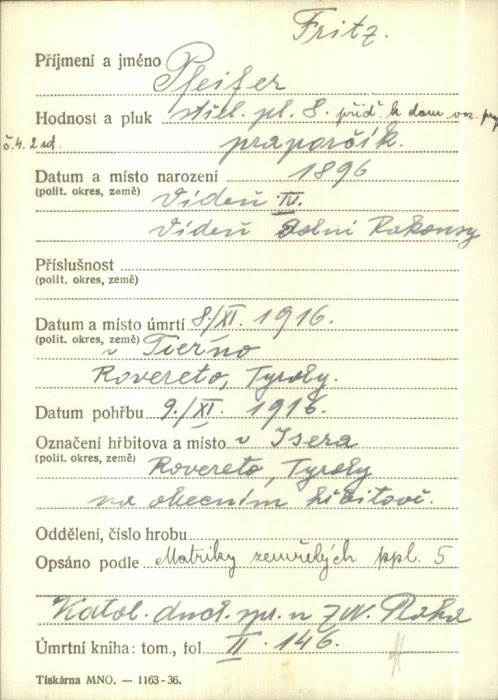 Fritz.
Příjmení a jméno Pfeifer
Hodnost a pluk střel. pl. 8. příd. k dom.
č. 4. 2 set. praporčík.
Datum a místo narození 1896
(polit. okres, země) Vídeň IV.
Vídeň Dolní Rakousy
Příslušnost
(polit. okres, země)
Datum a místo úmrtí 8./XI. 1916.
(polit. okres, země) v Tierno
Rovereto, Tyroly.
Datum pohřbu 9./XI. 1916.
Označení hřbitova a místo v Isera
(polit. okres, země) Rovereto, Tyroly
na obecním hřbitově.
Oddělení, číslo hrobu
Opsáno podle Matriky zemřelých ppl. 5
Katol. duch. spr. n
Úmrtní kniha: tom., fol II. 146.
Tiskárna MNO. — 1163-36.